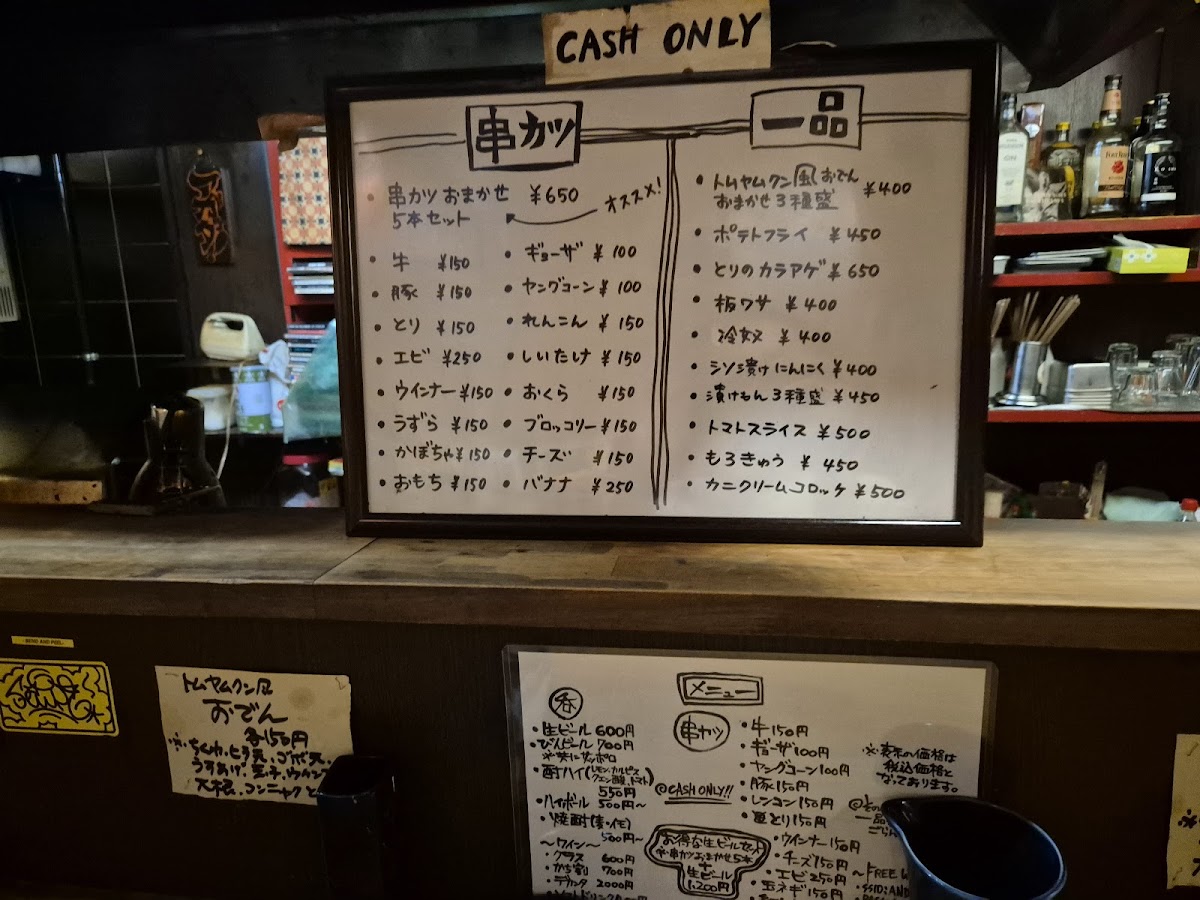 CASH ONLY
串カツ
・串カツ おまかせ ¥650
5本セット
オススメ!
・牛 ¥150
・豚 ¥150
・とり ¥150
・エビ ¥250
・ウインナー ¥150
・うずら ¥150
・かぼちゃ ¥150
・おもち ¥150
・ギョーザ ¥100
・ヤングコーン ¥100
・れんこん ¥150
・しいたけ ¥150
・おくら ¥150
・ブロッコリー ¥150
・チーズ ¥150
・バナナ ¥250
一品
・トムヤムクン風おでん
おまかせ3種盛 ¥400
・ポテトフライ ¥450
・とりのカラアゲ ¥650
・板ワサ ¥400
・冷奴 ¥400
・シソ漬けにんにく ¥400
・漬けもん3種盛 ¥450
・トマトスライス ¥500
・もろきゅう ¥450
・カニクリームコロッケ ¥500
トムヤムクン風
おでん
各150円
※ちくわ、ヒラ天、ゴボ天、
うすあげ、玉子、ウインナ
大根、コンニャク
メニュー
呑
・生ビール 600円
・びんビール 700円
※共にサッポロ
・酎ハイ(レモン、カルピス
クエン酸、トマト)
550円
・ハイボール 500円~
・焼酎(麦・イモ)
500円~
~ワイン~
・グラス 600円
・かち割 700円
・デカンタ 2000円
・ソフトドリンク
@CASH ONLY!!
お得な生ビールセット
※串カツおまかせ5本
+
生ビール
1,200円
串カツ
・牛150円
・ギョーザ100円
・ヤングコーン100円
・豚150円
・レンコン150円
・とり150円
・ウインナー150円
・チーズ150円
・エビ250円
・玉ネギ150円
※表示の価格は
税込価格と
なっております。
@その
一品
ごらん
~FREE W
・SSID:AND